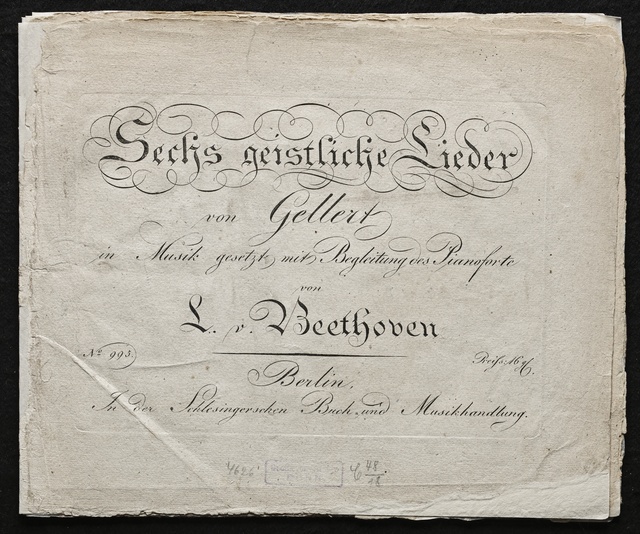 Sechs geistliche Lieder
von Gellert
in Musik gesetzt mit Begleitung des Pianoforte
von
L. v. Beethoven
No 993.
Berlin,
In der Schlesingerschen Buch und Musikhandlung.
48
18